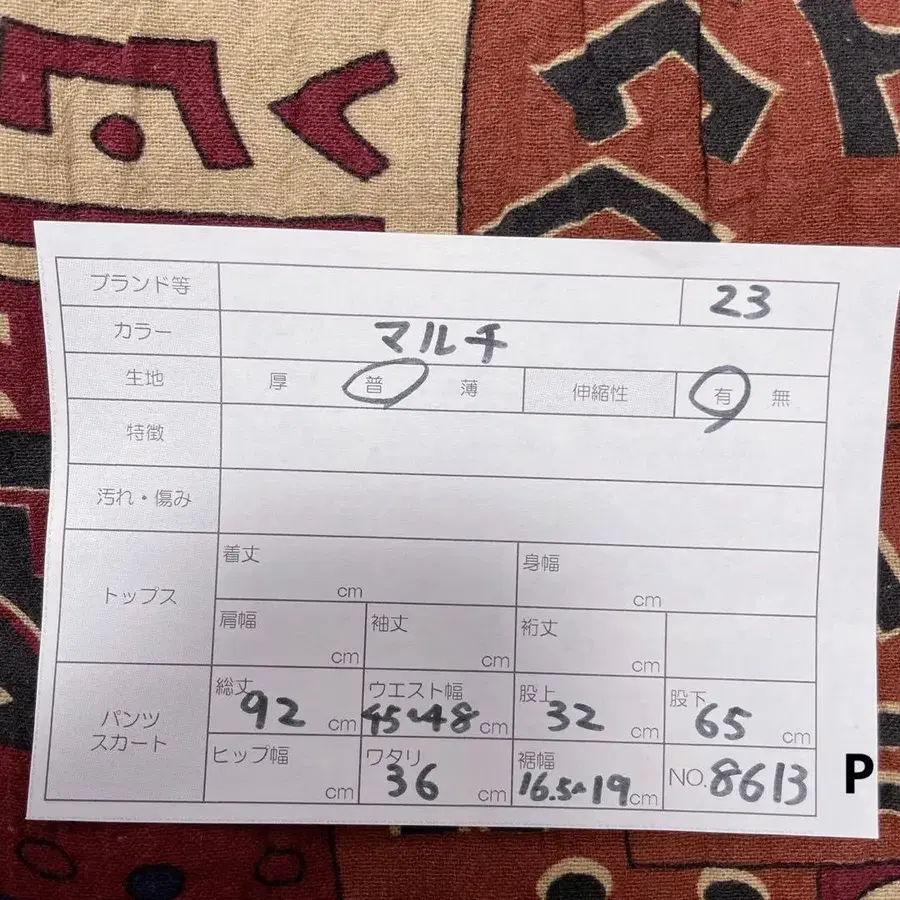 ブランド等 23
カラー マルチ
生地 厚 普 薄 伸縮性 有 無
特徴
汚れ・傷み
トップス 着丈 cm 身幅 cm
肩幅 cm 袖丈 cm 裄丈 cm
パンツ スカート 総丈 92 cm ウエスト幅 45~48 cm 股上 32 cm 股下 65 cm
ヒップ幅 cm ワタリ 36 cm 裾幅 16.5~19 cm NO. 8613
P